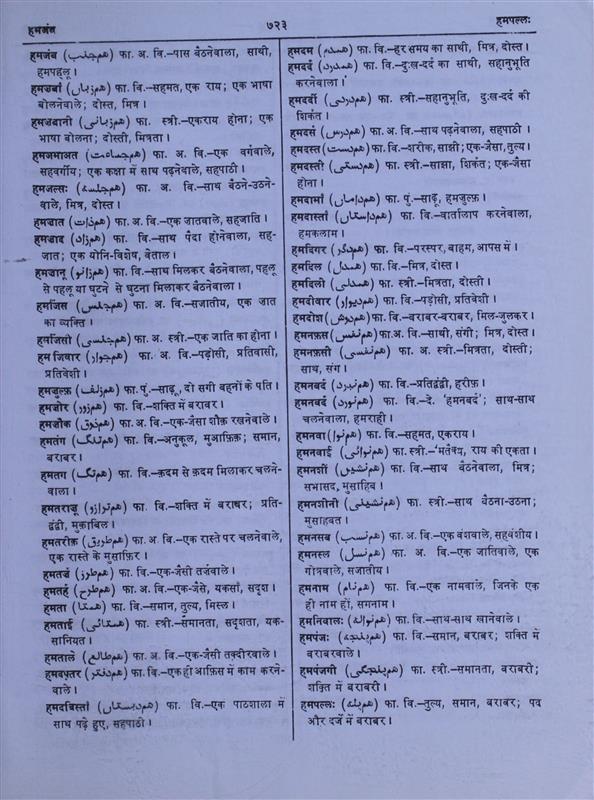 हमजंब
७२३
हमपल्लः
हमजंब (هم‌جنب) फा. अ. वि.–पास बैठनेवाला, साथी,
हमपहलू।
हमजबाँ (هم‌زباں) फा. वि.–सहमत, एक राय; एक भाषा
बोलनेवाले; दोस्त, मित्र।
हमजबानी (هم‌زبانی) फा. स्त्री.–एकराय होना; एक
भाषा बोलना; दोस्ती, मित्रता।
हमजमाअत (هم‌جماعت) फा. अ. वि.–एक वर्गवाले,
सहवर्गीय; एक कक्षा में साथ पढ़नेवाले, सहपाठी।
हमजल्सः (هم‌جلسه) फा. अ. वि.–साथ बैठने-उठने-
वाले, मित्र, दोस्त।
हमज़ात (هم‌ذات) फा. अ. वि.–एक जातवाले, सहजाति।
हमज़ाद (هم‌زاد) फा. वि.–साथ पैदा होनेवाला, सह-
जात; एक योनि-विशेष, बेताल।
हमज़ानू (هم‌زانو) फा. वि.–साथ मिलकर बैठनेवाला, पहलू
से पहलू या घुटने से घुटना मिलाकर बैठनेवाला।
हमजिंस (هم‌جنس) फा. अ. वि.–सजातीय, एक जात
का व्यक्ति।
हमजिंसी (هم‌جنسی) फा. अ. स्त्री.–एक जाति का होना।
हमजिवार (هم‌جوار) फा. अ. वि.–पड़ोसी, प्रतिवासी,
प्रतिवेशी।
हमजुल्फ़ (هم‌زلف) फा. पुं.–साढ़ू, दो सगी बहनों के पति।
हमज़ोर (هم‌زور) फा. वि.–शक्ति में बराबर।
हमजौक़ (هم‌ذوق) फा. अ. वि.–एक-जैसा शौक़ रखनेवाले।
हमतंग (هم‌تنگ) फा. वि.–अनुकूल, मुआफ़िक़; समान,
बराबर।
हमतग (هم‌تگ) फा. वि.–क़दम से क़दम मिलाकर चलने-
वाला।
हमतराज़ू (هم‌ترازو) फा. वि.–शक्ति में बराबर; प्रति-
द्वंद्वी, मुक़ाबिल।
हमतरीक़ (هم‌طریق) फा. अ. वि.–एक रास्ते पर चलनेवाले,
एक रास्ते के मुसाफ़िर।
हमतर्ज़ (هم‌طرز) फा. अ. वि.–एक-जैसी तर्ज़वाले।
हमतर्ह (هم‌طرح) फा. अ. वि.–एक-जैसे, यकसाँ, सदृश।
हमता (همتا) फा. वि.–समान, तुल्य, मिस्ल।
हमताई (همتائی) फा. स्त्री.–समानता, सदृशता, यक-
सानियत।
हमताले (هم‌طالع) फा. अ. वि.–एक-जैसी तक़्दीरवाले।
हमदफ़्तर (هم‌دفتر) फा. वि.–एक ही आफ़िस में काम करने-
वाले।
हमदबिस्ताँ (هم‌دبستاں) फा. वि.–एक पाठशाला में
साथ पढ़े हुए, सहपाठी।
हमदम (همدم) फा. वि.–हर समय का साथी, मित्र, दोस्त।
हमदर्द (همدرد) फा. वि.–दुःख-दर्द का साथी, सहानुभूति
करनेवाला।
हमदर्दी (هم‌دردی) फा. स्त्री.–सहानुभूति, दुःख-दर्द की
शिर्कत।
हमदर्स (هم‌درس) फा. अ. वि.–साथ पढ़नेवाला, सहपाठी।
हमदस्त (هم‌دست) फा. वि.–शरीक, साझी; एक-जैसा, तुल्य।
हमदस्ती (هم‌دستی) फा. स्त्री.–साझा, शिर्कत; एक-जैसा
होना।
हमदामाँ (هم‌داماں) फा. पुं.–साढ़ू, हमजुल्फ़।
हमदास्ताँ (هم‌داستاں) फा. वि.–वार्तालाप करनेवाला,
हमकलाम।
हमदिगर (هم‌دگر) फा. वि.–परस्पर, बाहम, आपस में।
हमदिल (همدل) फा. वि.–मित्र, दोस्त।
हमदिली (همدلی) फा. स्त्री.–मित्रता, दोस्ती।
हमदीवार (هم‌دیوار) फा. वि.–पड़ोसी, प्रतिवेशी।
हमदोश (هم‌دوش) फा. वि.–बराबर-बराबर, मिल-जुलकर।
हमनफ़स (هم‌نفس) फा. अ. वि.–साथी, संगी; मित्र, दोस्त।
हमनफ़सी (هم‌نفسی) फा. अ. स्त्री.–मित्रता, दोस्ती;
साथ, संग।
हमनबर्द (هم‌نبرد) फा. वि.–प्रतिद्वंद्वी, हरीफ़।
हमनवर्द (هم‌نورد) फा. वि.–दे. 'हमनबर्द'; साथ-साथ
चलनेवाला, हमराही।
हमनवा (هم‌نوا) फा. वि.–सहमत, एकराय।
हमनवाई (هم‌نوائی) फा. स्त्री.–मतैक्य, राय की एकता।
हमनशीं (هم‌نشیں) फा. वि.–साथ बैठनेवाला, मित्र;
सभासद, मुसाहिब।
हमनशीनी (هم‌نشینی) फा. स्त्री.–साथ बैठना-उठना;
मुसाहबत।
हमनसब (هم‌نسب) फा. अ. वि.–एक वंशवाले, सहवंशीय।
हमनस्ल (هم‌نسل) फा. अ. वि.–एक जातिवाले, एक
गोत्रवाले, सजातीय।
हमनाम (هم‌نام) फा. वि.–एक नामवाले, जिनके एक
ही नाम हों, समनाम।
हमनिवालः (هم‌نواله) फा. वि.–साथ-साथ खानेवाले।
हमपंजः (هم‌پنجه) फा. वि.–समान, बराबर; शक्ति में
बराबरवाले।
हमपंजगी (هم‌پنجگی) फा. स्त्री.–समानता, बराबरी;
शक्ति में बराबरी।
हमपल्लः (هم‌پله) फा. वि.–तुल्य, समान, बराबर; पद
और दर्जे में बराबर।